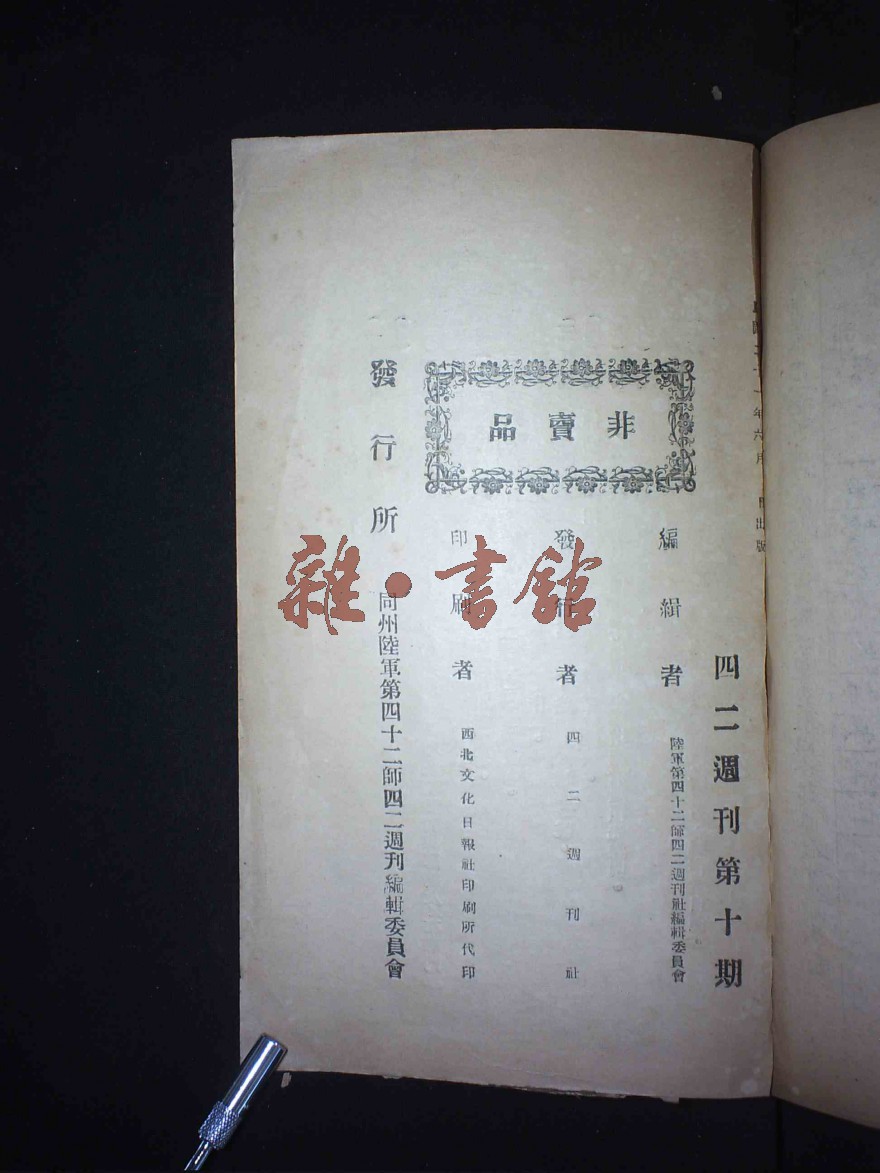 年六月 日出版
四二週刊第十期
非賣品
編緝者 陸軍第四十二師四二週刊社編輯委員會
發行者 四二週刊社
印刷者 西北文化日報社印刷所代印
發行所 同州陸軍第四十二師四二週刊編輯委員會
雜·書館